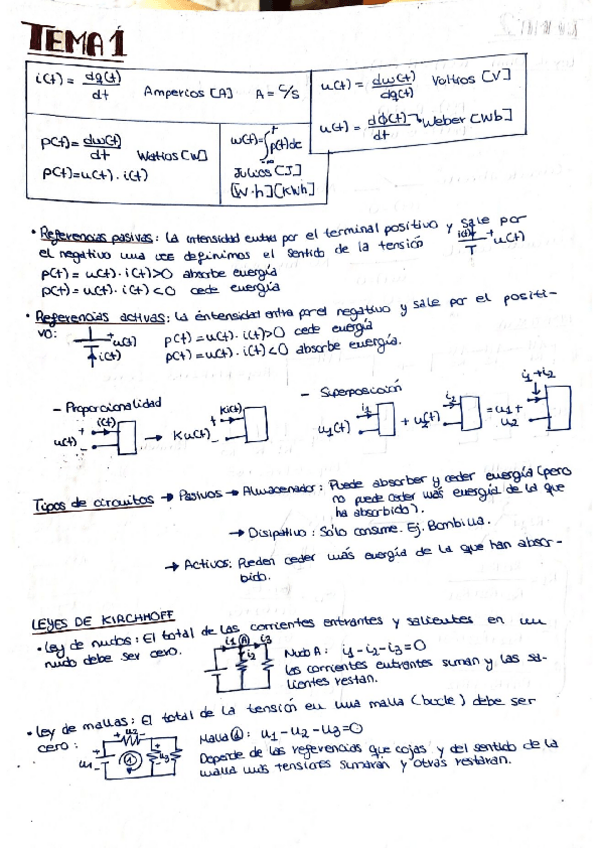 TEMA 1
i(t) = dq(t)/dt Amperios [A] A = C/s
u(t) = dw(t)/dq(t) Voltios [V]
u(t) = dϕ(t)/dt Weber [Wb]
p(t) = dw(t)/dt Watios [W]
p(t) = u(t) · i(t)
w(t) = ∫ p(t)dt
Julios [J]
[W·h] [KWh]
• Referencias pasivas: La intensidad entra por el terminal positivo y sale por
el negativo una vez definimos el sentido de la tensión
i(t) + u(t)
p(t) = u(t) · i(t) > 0 absorbe energía
p(t) = u(t) · i(t) < 0 cede energía
• Referencias activas: La intensidad entra por el negativo y sale por el positi-
vo: + u(t) i(t) p(t) = u(t) · i(t) > 0 cede energía
p(t) = u(t) · i(t) < 0 absorbe energía.
- Proporcionalidad
i(t) + u(t) - → Ki(t) + Ku(t) -
- Superposición
u1(t) i1 + u2(t) i2 = u1 + u2 i1 + i2
Tipos de circuitos → Pasivos → Almacenador: Puede absorber y ceder energía (pero
no puede ceder más energía de la que
ha absorbido).
→ Disipativo: Sólo consume. Ej. Bombilla.
→ Activos: Pueden ceder más energía de la que han absor-
bido.
LEYES DE KIRCHHOFF
• Ley de nudos: El total de las corrientes entrantes y salientes en un
nudo debe ser cero.
i1 A i3
i2
Nudo A: i1 - i2 - i3 = 0
Las corrientes entrantes suman y las sa-
lientes restan.
• Ley de mallas: El total de la tensión en una malla (bucle) debe ser
cero:
u1 + - + u2 - 1 + u3 -
Malla 1: u1 - u2 - u3 = 0
Depende de las referencias que cojas y del sentido de la
malla unas tensiones sumarán y otras restarán.